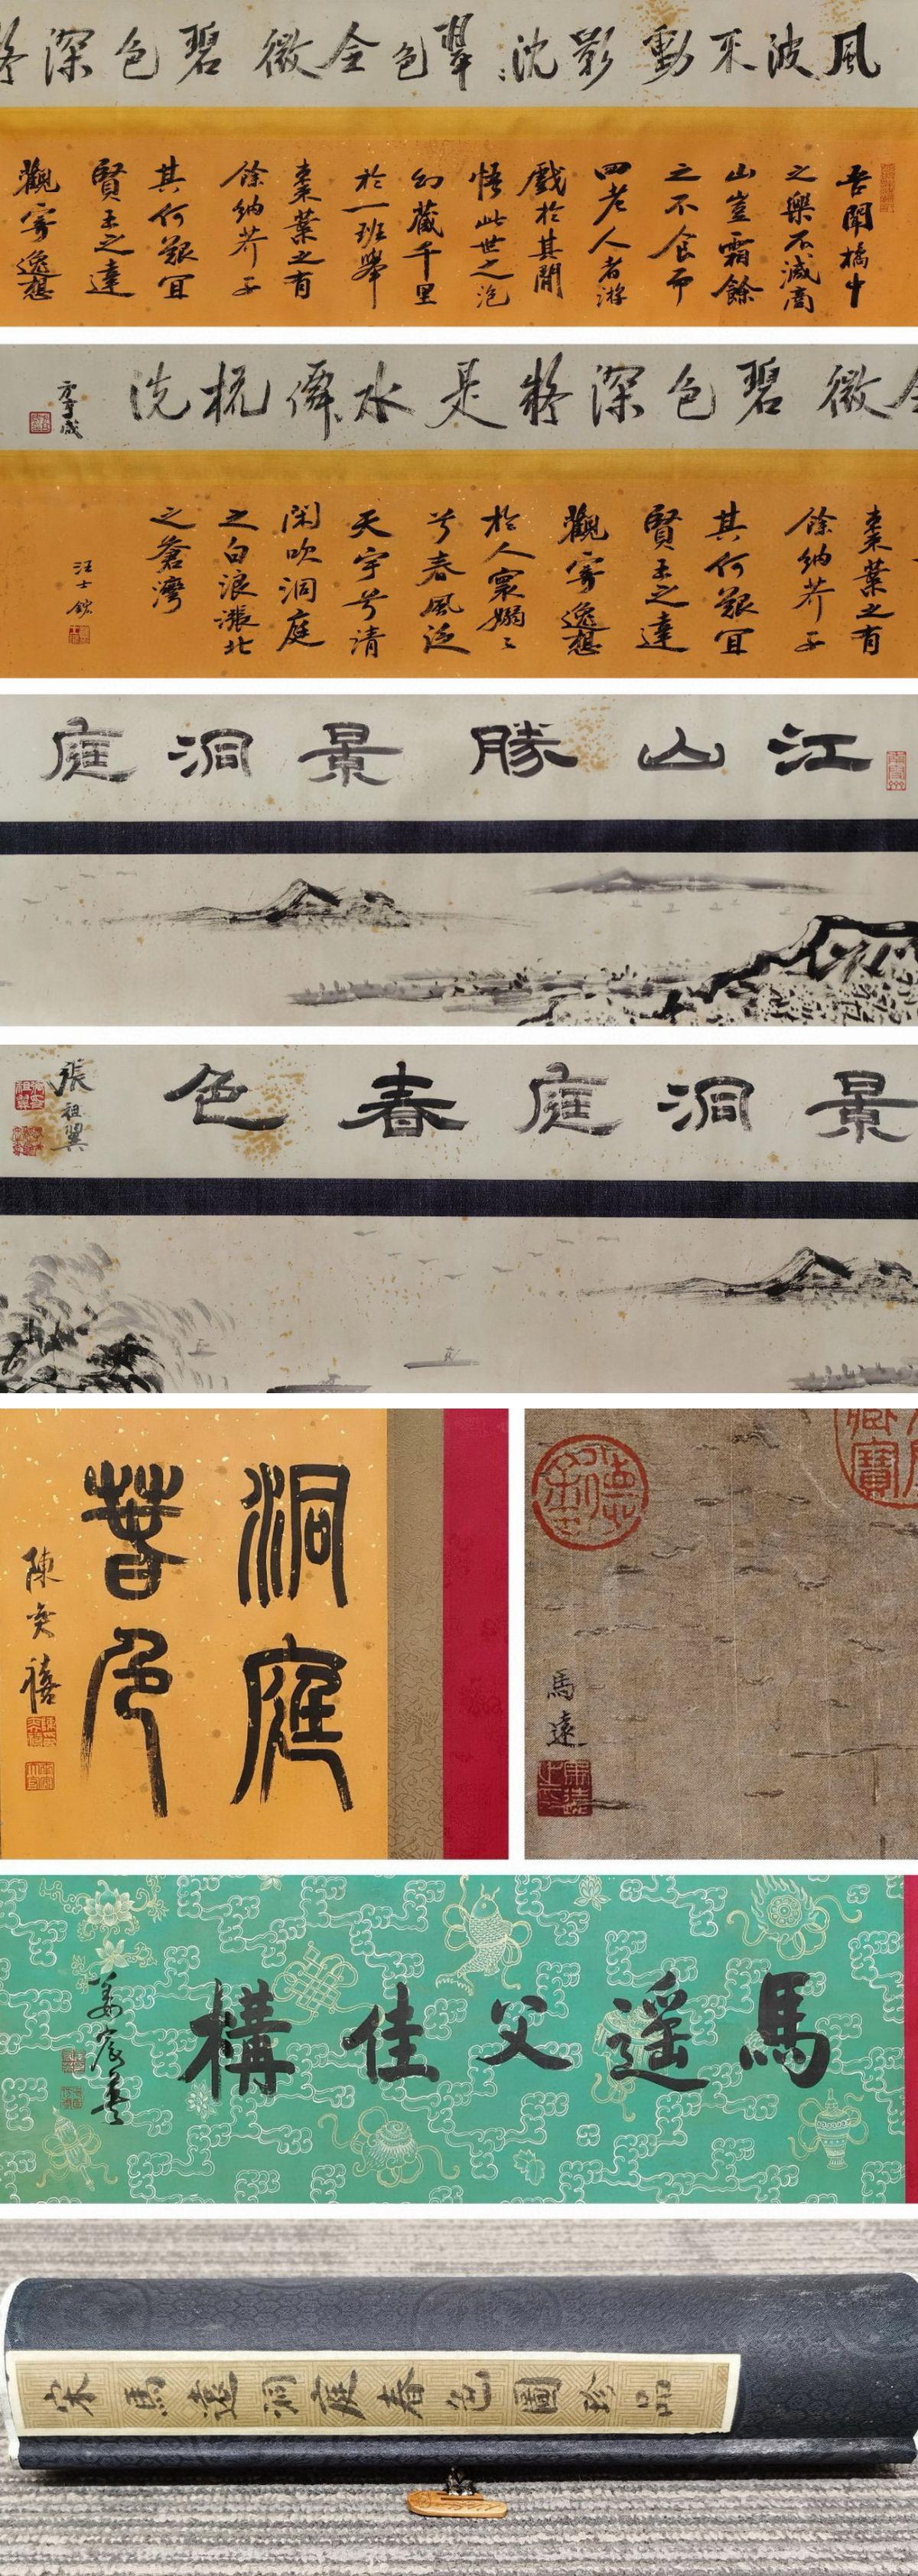 風波不動影沈〻翠色全微碧色深將
吾聞橘中
之樂不減商
山豈霜餘
之不食而
四老人者游
戲於其間
悟此世之泡
幻藏千里
於一班舉
棗葉之有
餘納芥子
其何艱宜
賢王之達
觀寄逸想
全微碧色深將是水僊梳洗
方亨咸
棗葉之有
餘納芥子
其何艱宜
賢王之達
觀寄逸想
於人寰嫋〻
兮春風泛
天宇兮清
閑吹洞庭
之白浪漲北
之蒼灣
汪士鋐
江山勝景洞庭
景洞庭春色
張祖翼
洞庭
春色
陳奕禧
馬遠
馬遥父佳構
姜宸英
宋馬遠洞庭春色圖珍品